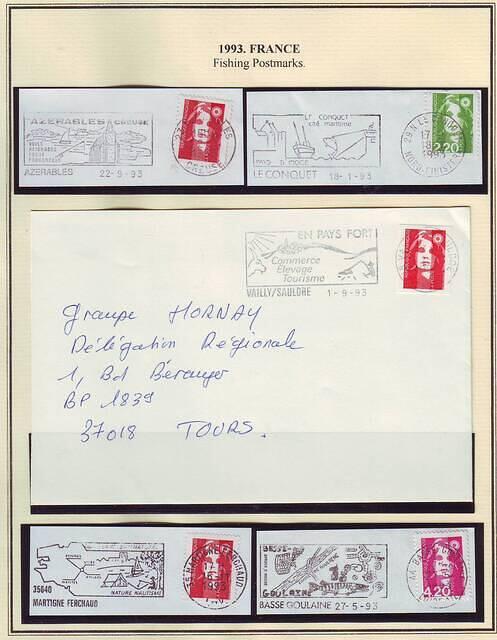 1993. FRANCE
Fishing Postmarks.
AZERABLES CREUSE
AZERABLES 22-9-93
CREUSE
LE CONQUET
cité maritime
PAYS D'IROISE
LE CONQUET 18-1-93
2,20
1993
EN PAYS FORT
Commerce
Elevage
Tourisme
VAILLY/SAULDRE 1-9-93
Groupe HORNAY
Délégation Régionale
1, Bd Béranger
BP 1839
37018 TOURS.
35640
NATURE NAUTISME
MARTIGNE FERCHAUD
1993
BASSE
GOULAINE
BASSE GOULAINE 27-5-93
4,20